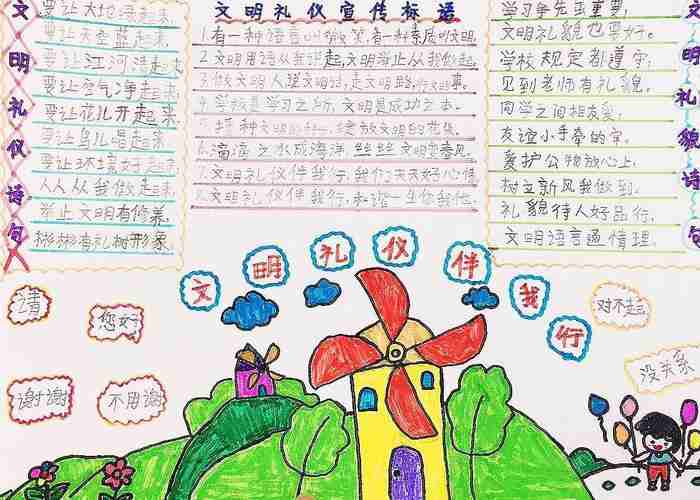 文明礼仪诗句
要让大地绿起来,
要让天空蓝起来,
要让江河清起来,
要让空气净起来,
要让花儿开起来,
要让鸟儿唱起来,
要让环境好起来,
人人从我做起来,
举止文明有修养,
彬彬有礼树形象。
文明礼仪宣传标语
1.有一种语言叫微笑,有一种素质叫文明。
2.文明用语从我讲起,文明举止从我做起。
3.做文明人,现文明话,走文明路,行文明事。
4.学校是学习之所,文明是成功之本。
5.播种文明的种子,绽放文明的花朵。
6.滴滴之水成海洋,丝丝文明如春风。
7.文明礼仪伴我行,我们天天好心情
8.文明礼仪伴我行,和谐一生你我他。
学习争先更重要,
文明礼貌也要好。
学校规定都遵守,
见到老师有礼貌。
同学之间相友爱,
友谊小手牵的牢。
爱护公物放心上,
树立新风我做到。
礼貌待人好品行,
文明语言通情理。
文明礼貌诗句
文明礼仪伴我行
请
您好
谢谢
不用谢
对不起
没关系